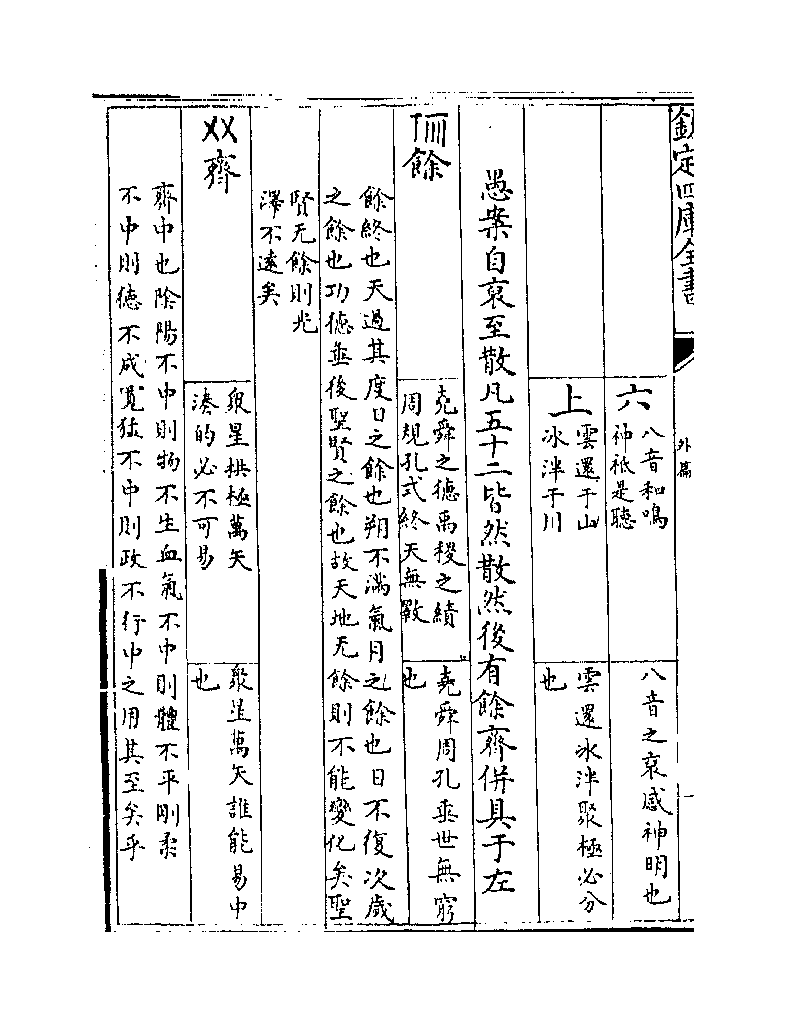 欽定四庫全書
外篇
六
八音和鳴
神祗是聽
八音之裒感神明也
上
雲還于山
冰泮于川
雲還冰泮聚極必分
也
愚案自裒至散凡五十二皆然散然後有餘齊併具于左
餘
堯舜之德禹稷之績
周規孔式終天無斁
堯舜周孔垂世無窮
也
餘終也天過其度日之餘也朔不滿氣月之餘也日不復次歲
之餘也功德垂後聖賢之餘也故天地无餘則不能變化矣聖
賢无餘則光
澤不遠矣
齊
衆星拱極萬矢
湊的必不可易
衆星萬矢誰能易中
也
齊中也陰陽不中則物不生血氣不中則體不平剛柔
不中則德不成寬猛不中則政不行中之用其至矣乎